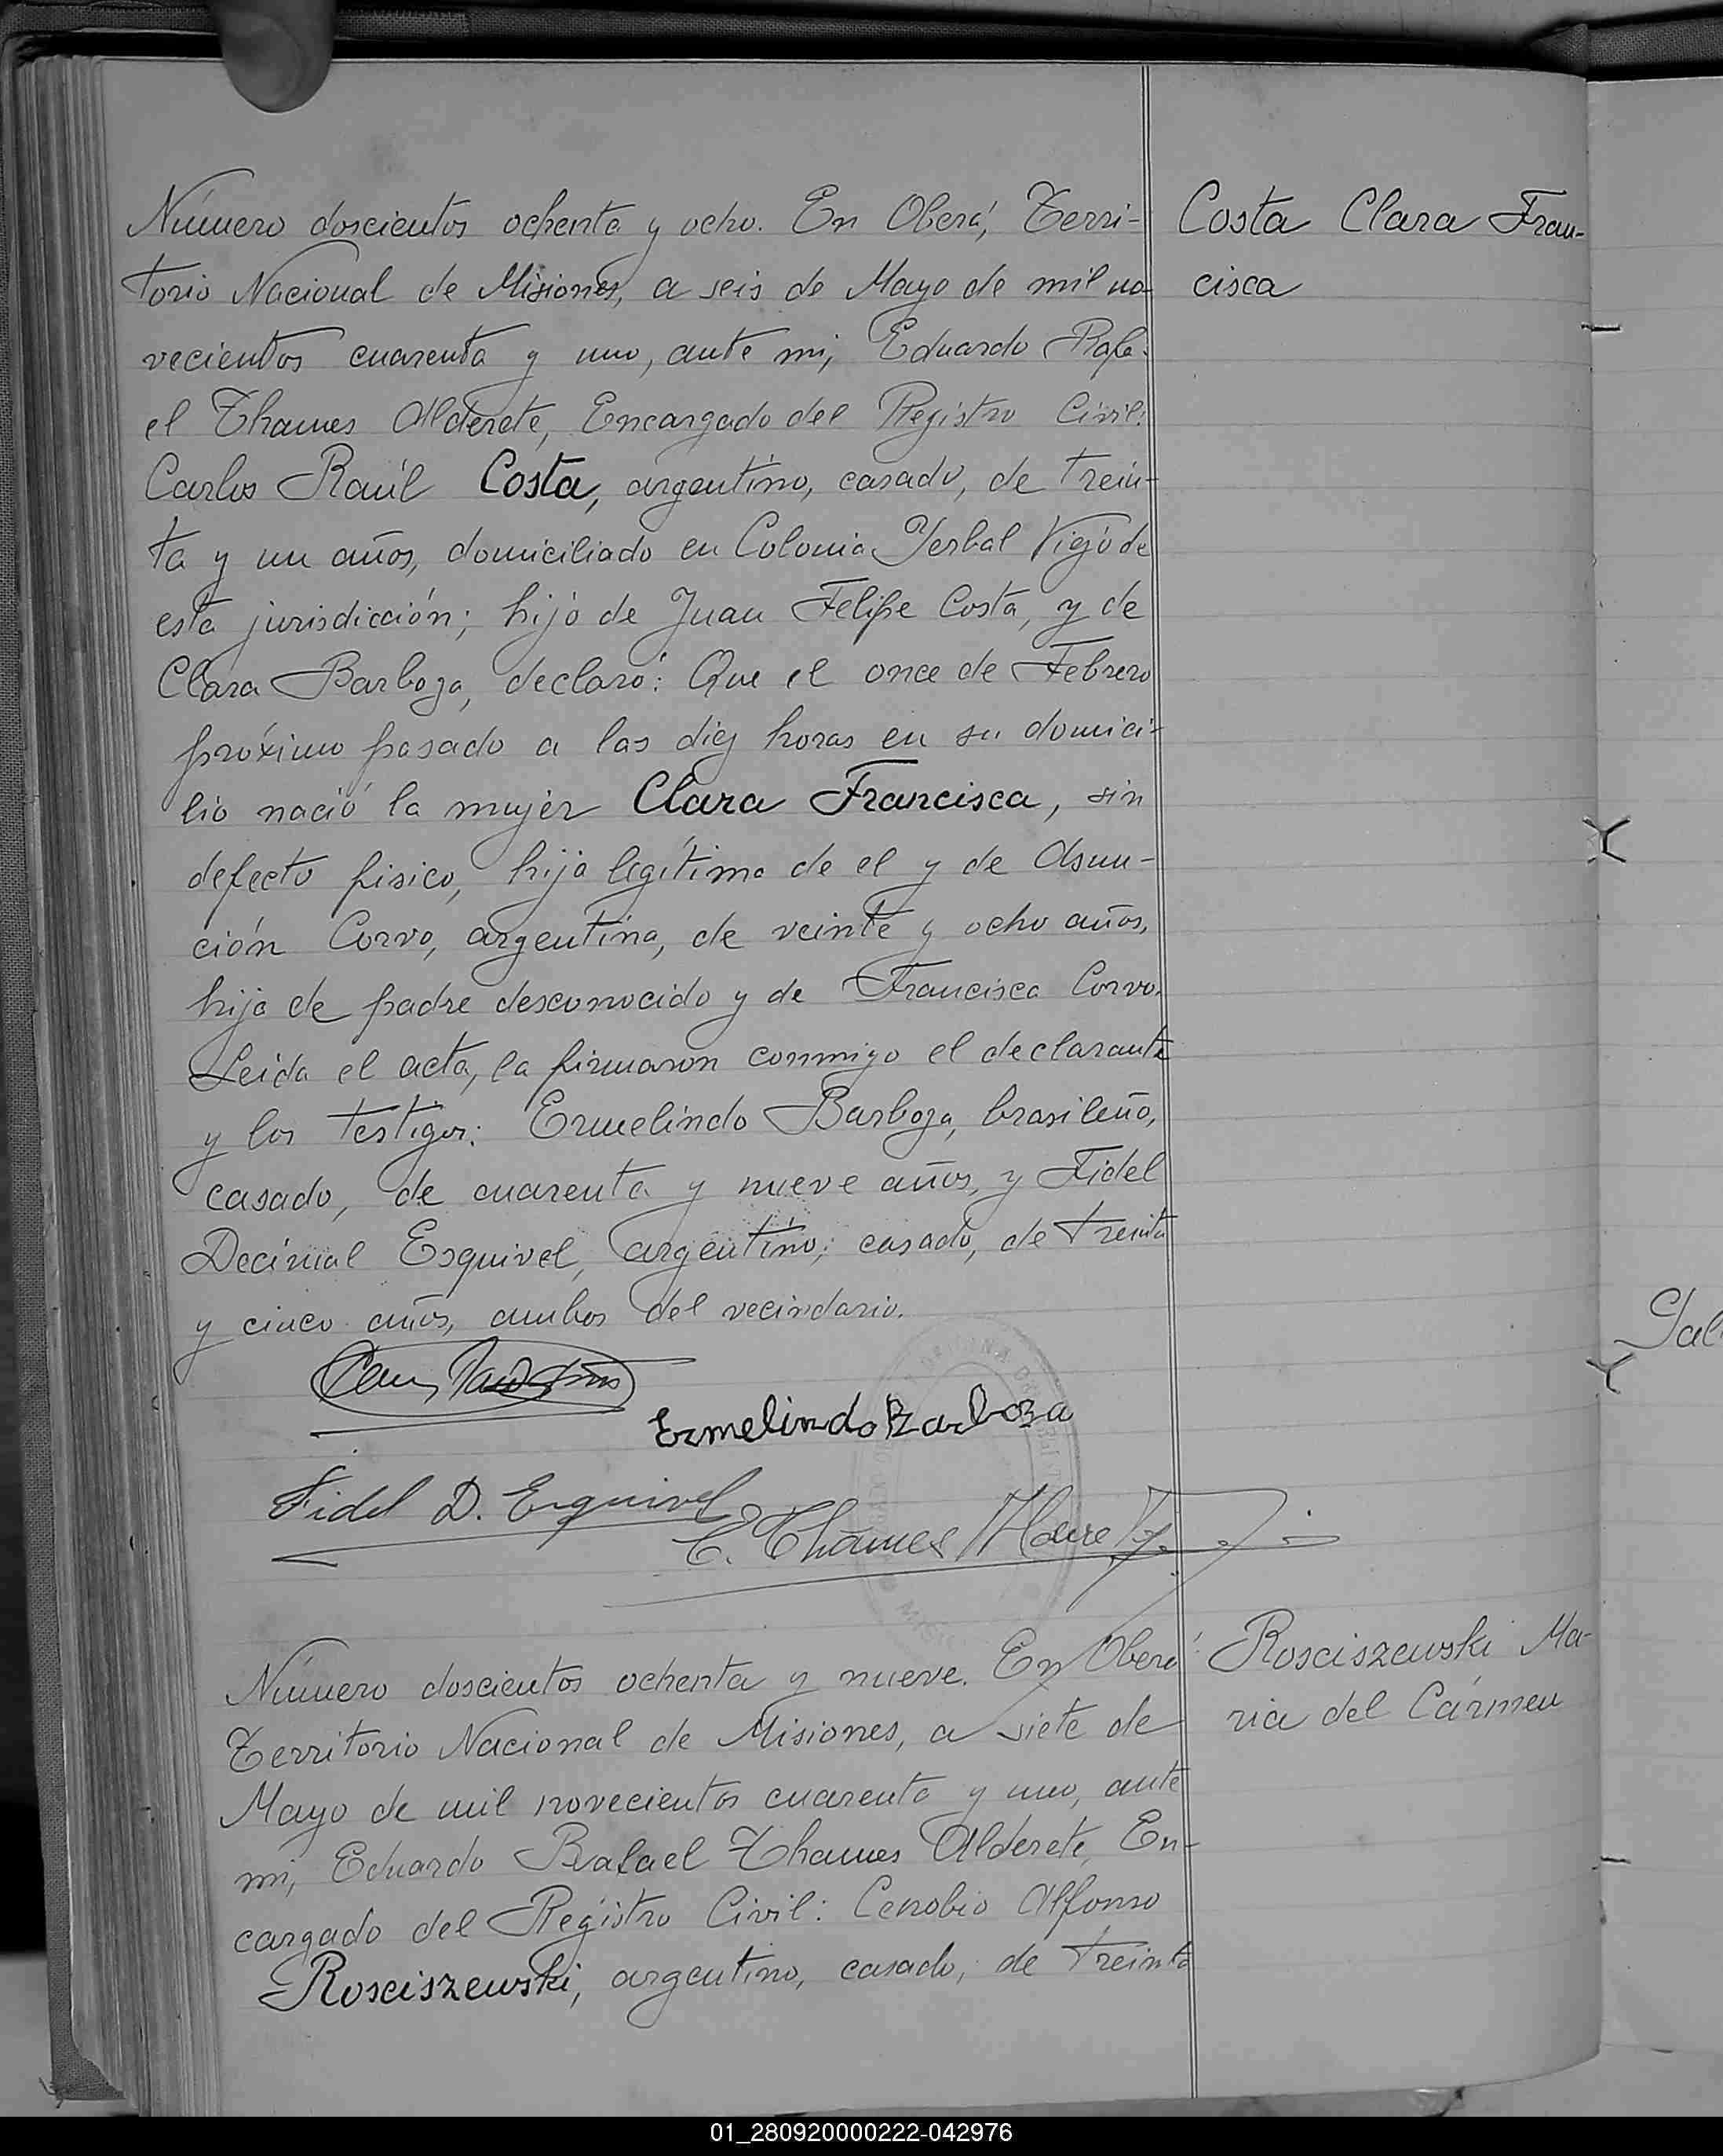 Número doscientos ochenta y ocho. En Oberá, Terri-
torio Nacional de Misiones, a seis de Mayo de mil no
vecientos cuarenta y uno, ante mi, Eduardo Rafa-
el Thames Alderete, Encargado del Registro Civil:
Carlos Raúl Costa, argentino, casado, de trein-
ta y un años, domiciliado en Colonia Yerbal Viejo de
esta jurisdicción; hijo de Juan Felipe Costa, y de
Clara Barboza, declaró: Que el once de Febrero
próximo pasado a las diez horas en su domici-
lio nació la mujer Clara Francisca, sin
defecto fisico, hija legítima de el y de Asun-
ción Corvo, argentina, de veinte y ocho años,
hija de padre desconocido y de Francisca Corvo.
Leida el acta, la firmaron conmigo el declarante
y los testigos: Ermelindo Barboza, brasileño,
casado, de cuarenta y nueve años, y Fidel
Decimal Esquivel, argentino, casado, de treinta
y cinco años, ambos del vecindario.
Costa Clara Fran-
cisca
Ermelindo Barboza
Fidel D. Esquivel
E. Thames Alderete
Número doscientos ochenta y nueve. En Oberá
Territorio Nacional de Misiones, a siete de
Mayo de mil novecientos cuarenta y uno, ante
mi, Eduardo Rafael Thames Alderete, En-
cargado del Registro Civil: Cenobio Alfonso
Rosciszewski, argentino, casado, de treinta
Rosciszewski Ma-
ria del Cármen
01_280920000222-042976